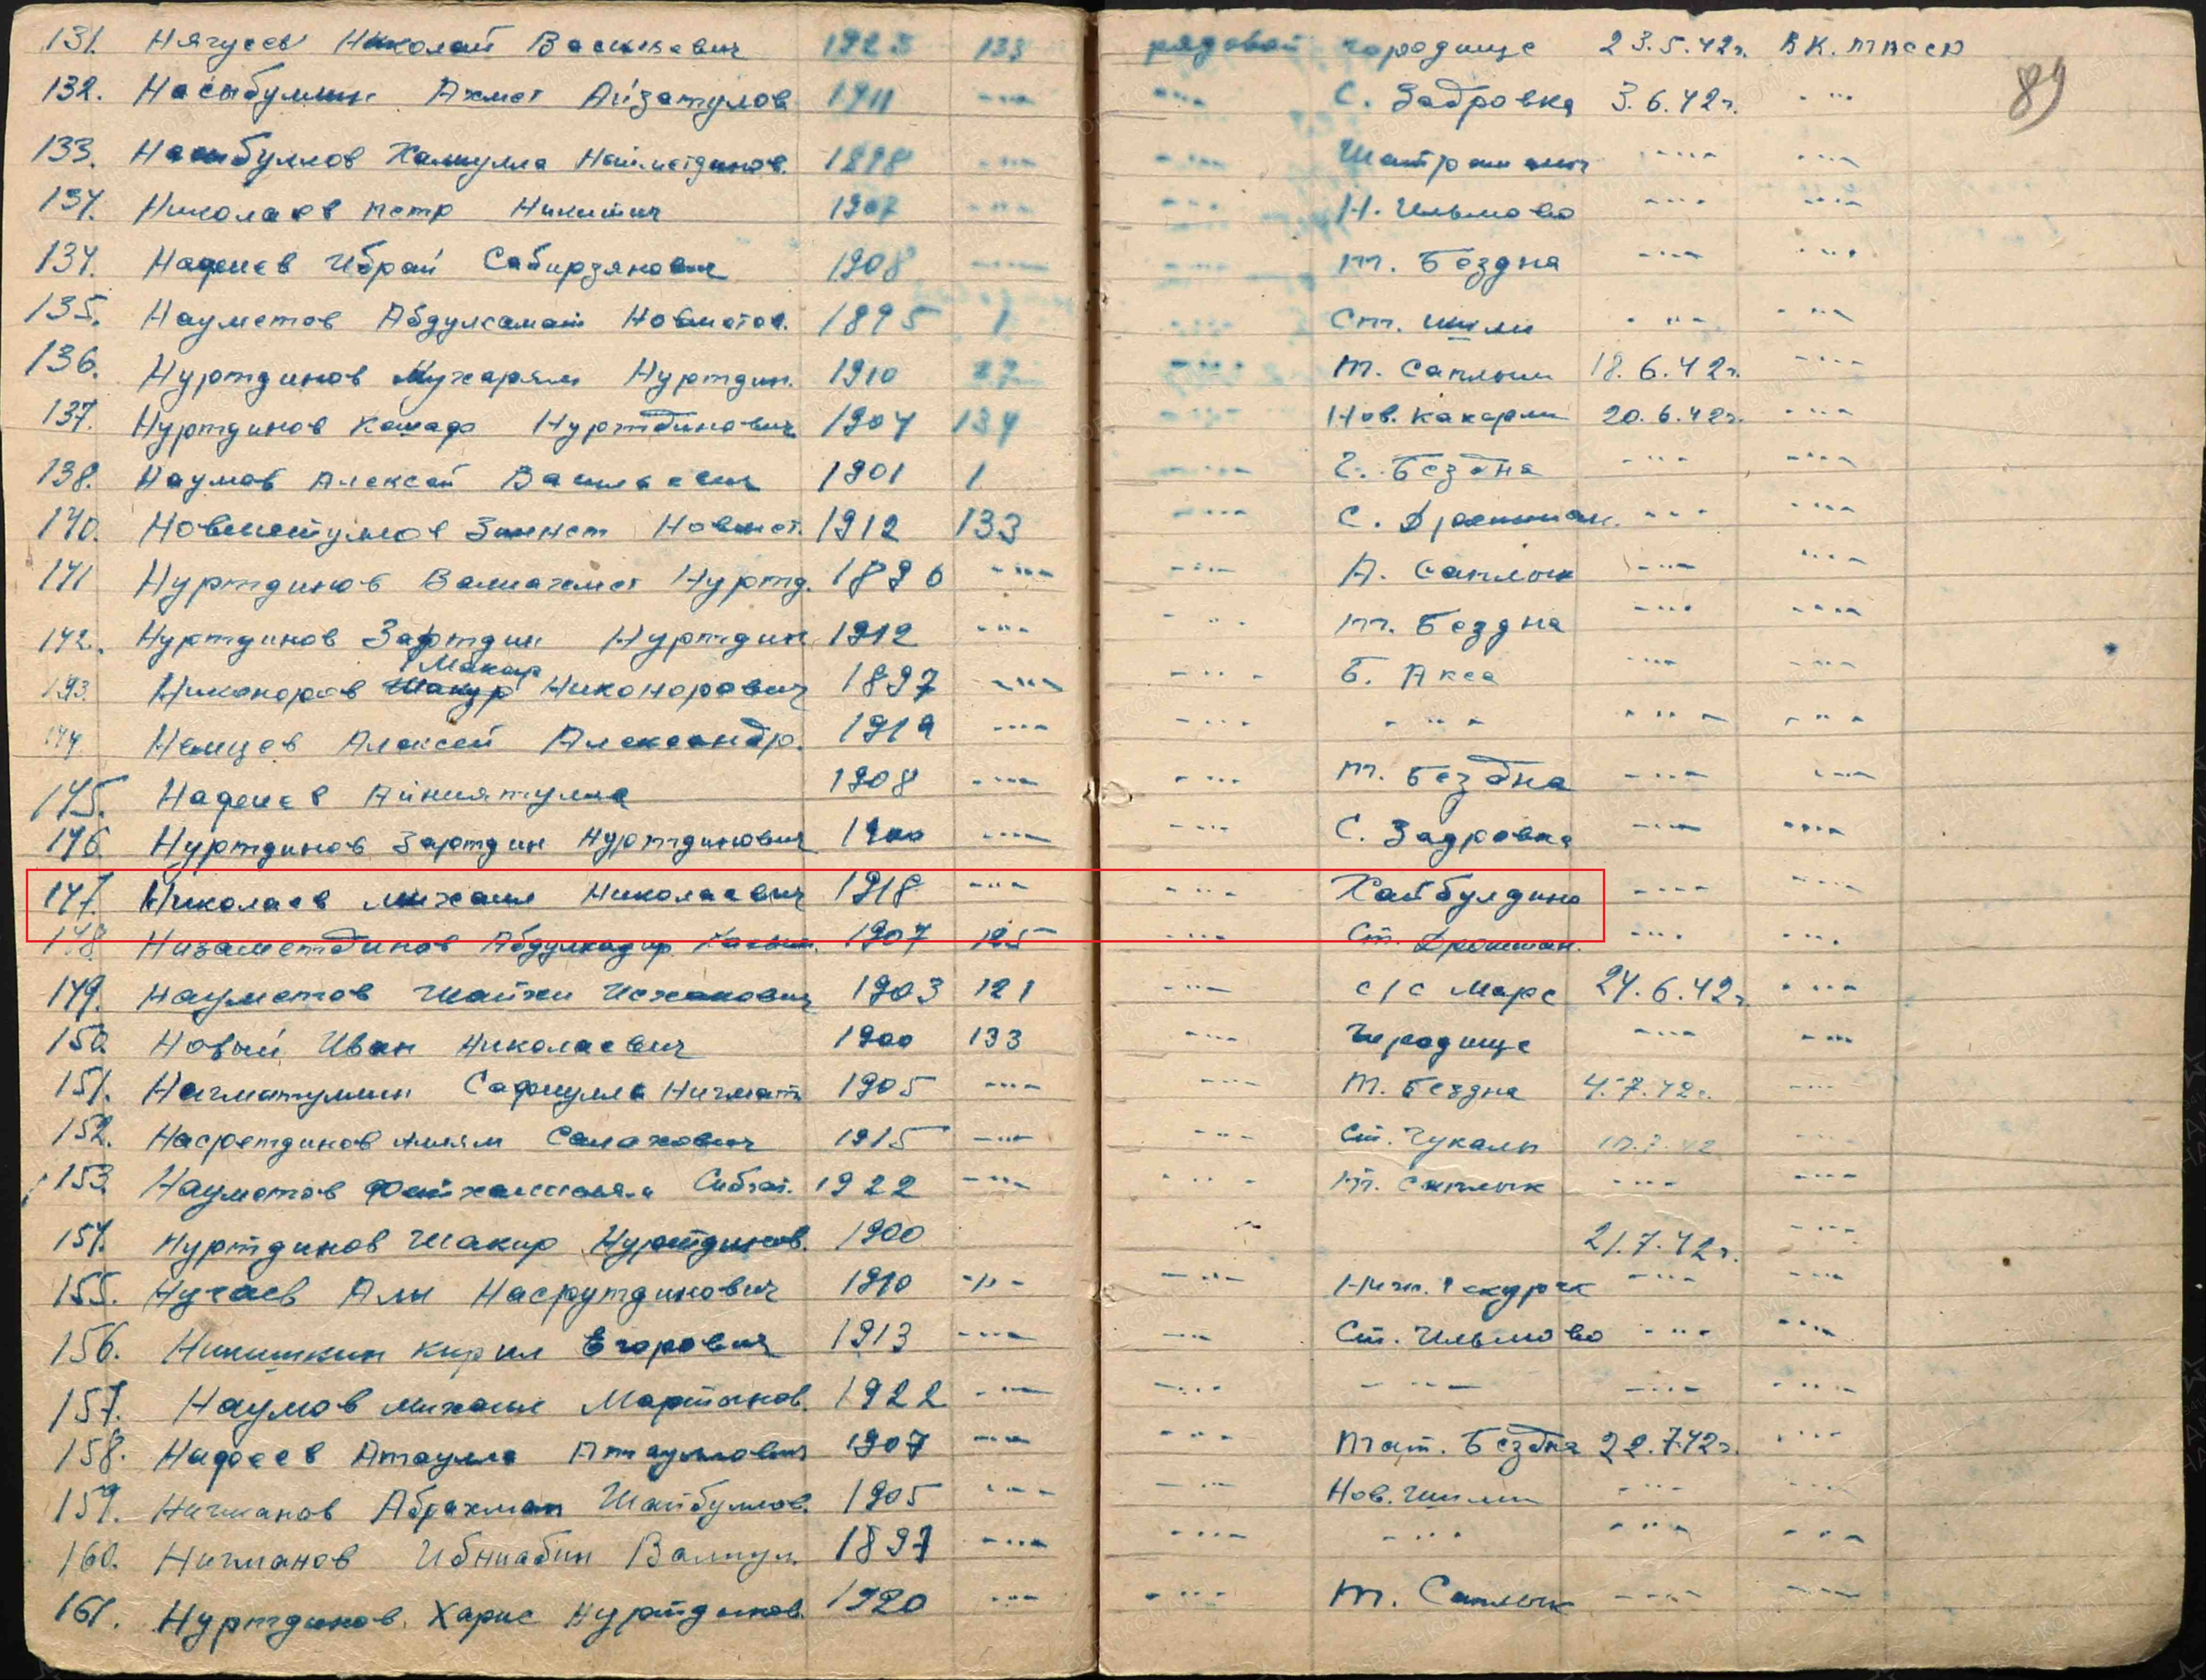 131. Нягусев Николай Васильевич 1923 133 рядовой городище 23.5.42г. ВК. ТАССР
89
132. Насыбуллин Ахмет Айзатулов 1911 -"- -"- С. Задровка 3.6.42г. -"-
133. Насыбуллов Халиулла 1898 -"- -"- Шатрашаны -"- -"-
134. Николаев Петр Никитич 1907 -"- -"- Н. Ильмово -"- -"-
134. Надеев Ибрай Сабирзянович 1908 -"- -"- Т. Бездна -"- -"-
135. Науметов Абдулсамат Новметов. 1895 1 -"- Ст. Шили -"- -"-
136. Нуртдинов Мухарям Нуртдин. 1910 27 -"- Т. Саплык 18.6.42г. -"-
137. Нуртдинов Кашаф Нуртдинович 1904 134 -"- Нов. Какерли 20.6.42г. -"-
138. Наумов Алексей Васильевич 1901 1 -"- Бездна -"- -"-
140. Новметуллов Зиннет Новмет. 1912 133 -"- С. Дрожжан. -"- -"-
141 Нуртдинов Валиахмет Нуртд. 1896 -"- -"- А. Саплык -"- -"-
142. Нуртдинов Зафтдин Нуртдин 1912 -"- -"- Т. Бездна -"- -"-
Макар
143. Никаноров Шакур Никонорович 1897 -"- -"- Б. Акса -"- -"-
144. Немцев Алексей Александр. 1919 -"- -"- -"- -"- -"-
145. Надеев Айниятулла 1908 -"- -"- Т. Бездна -"- -"-
146. Нуртдинов Зартдин Нуртдинович 1900 -"- -"- С. Задровка -"- -"-
147. Николаев Михаил Николаевич 1918 -"- -"- Хайбулдино -"- -"-
148. Низаметдинов Абдулкадир 1907 125 -"- Ст. Дрожжан. -"- -"-
149. Науметов Шайхи Исхакович 1903 121 -"- с/с Марс 24.6.42г. -"-
150. Новый Иван Николаевич 1900 133 -"- Городище -"- -"-
151. Нигматуллин Сафиулла Нигмат 1905 -"- -"- Т. Бездна 4.7.42г. -"-
152. Насретдинов Алям Салахович 1915 -"- -"- Ст. Чукалы -"-
153. Науметов Фатхылислям Сибгат. 1922 -"- -"- Т. Саплык -"- -"-
154. Нуртдинов Шакир Нуртдинов. 1900 -"- 21.7.42г. -"-
155. Нугаев Алы Насрутдинович 1910 -"- -"- Ниж. Чекурск -"- -"-
156. Никишкин Кирил Егорович 1913 -"- -"- Ст. Ильмово -"- -"-
157. Наумов Михаил Мартынов. 1922 -"- -"- -"- -"- -"-
158. Надеев Атаулла Атауллович 1907 -"- -"- Тат. Бездна 22.7.42г. -"-
159. Нигманов Абрахман Шайбуллов. 1905 -"- -"- Нов. Шили -"- -"-
160. Нигманов Ибниабин Валиул. 1897 -"- -"- -"- -"- -"-
161. Нуртдинов Харис Нуртдинов. 1920 -"- -"- Т. Саплык -"- -"-